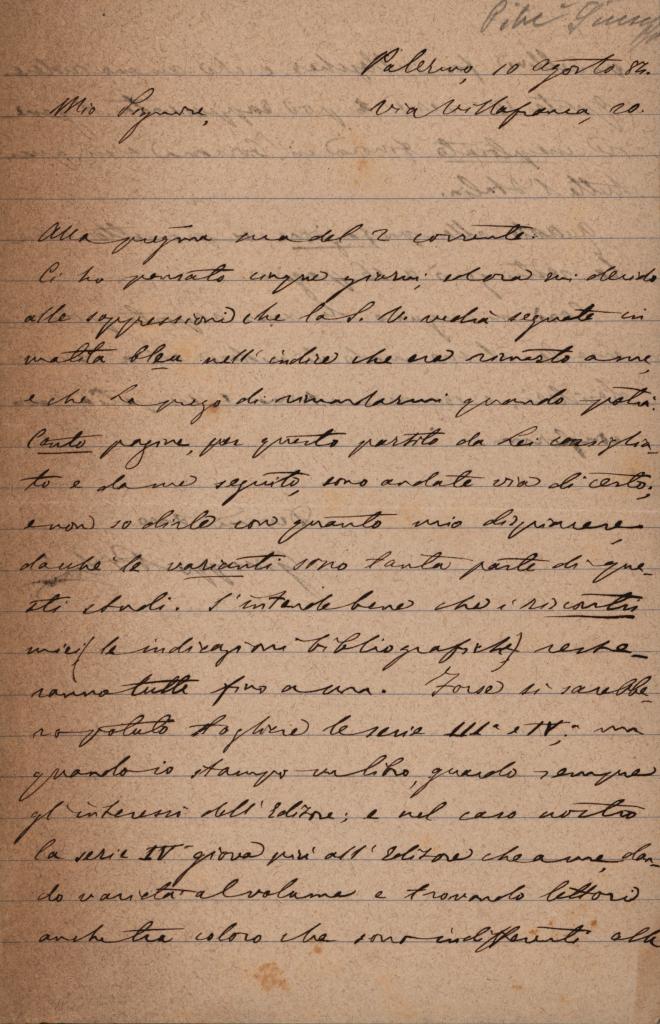 Palermo, 10 agosto 84.
Mio Signore, Via Villafranca, 20.
Alla pregma sua del 2 corrente.
Ci ho pensato cinque giorni, ed ora mi decido
alle soppressioni che la S. V. vedrà segnate in
matita bleu nell'indice che era rimasto a me,
e che La prego di rimandarmi quando potrà.
Cento pagine, per questo partito da Lei consiglia-
to e da me seguito, sono andate via di certo;
e non so dirle con quanto mio dispiacere,
dacchè le varianti sono tanta parte di que-
sti studi. S'intende bene che i riscontri
miei (le indicazioni bibliografiche) reste-
ranno tutte fino a una. Forse si sarebbe-
ro potuto togliere le serie IIIa e IVa; ma
quando io stampo un libro, guardo sempre
gl'interessi dell'Editore; e nel caso nostro
la serie IVa giova più all'Editore che a me, dan-
do varietà al volume e trovando lettori
anche tra coloro che sono indifferenti alle